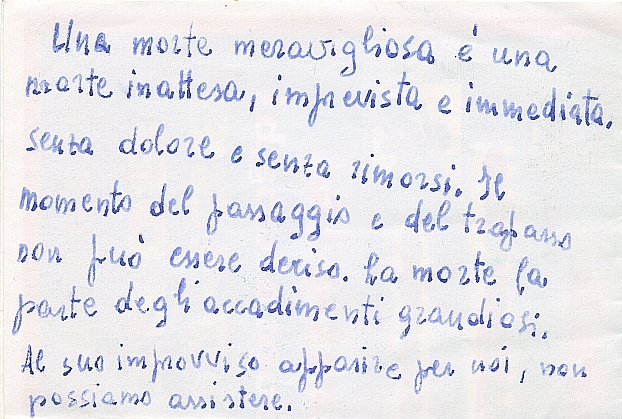 Una morte meravigliosa é una
morte inattesa, imprevista e immediata.
senza dolore e senza rimorsi. Il
momento del passaggio e del trapasso
non può essere deciso. La morte fa
parte degli accadimenti grandiosi.
Al suo improvviso apparire per noi, non
possiamo assistere.